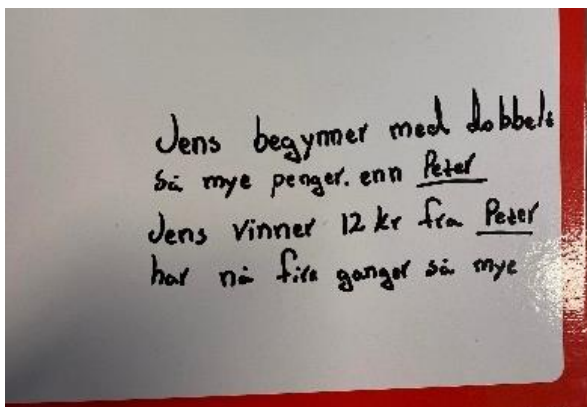 Jens begynner med dobbelt
så mye penger. enn Peter
Jens vinner 12 kr fra Peter
har nå fire ganger så mye